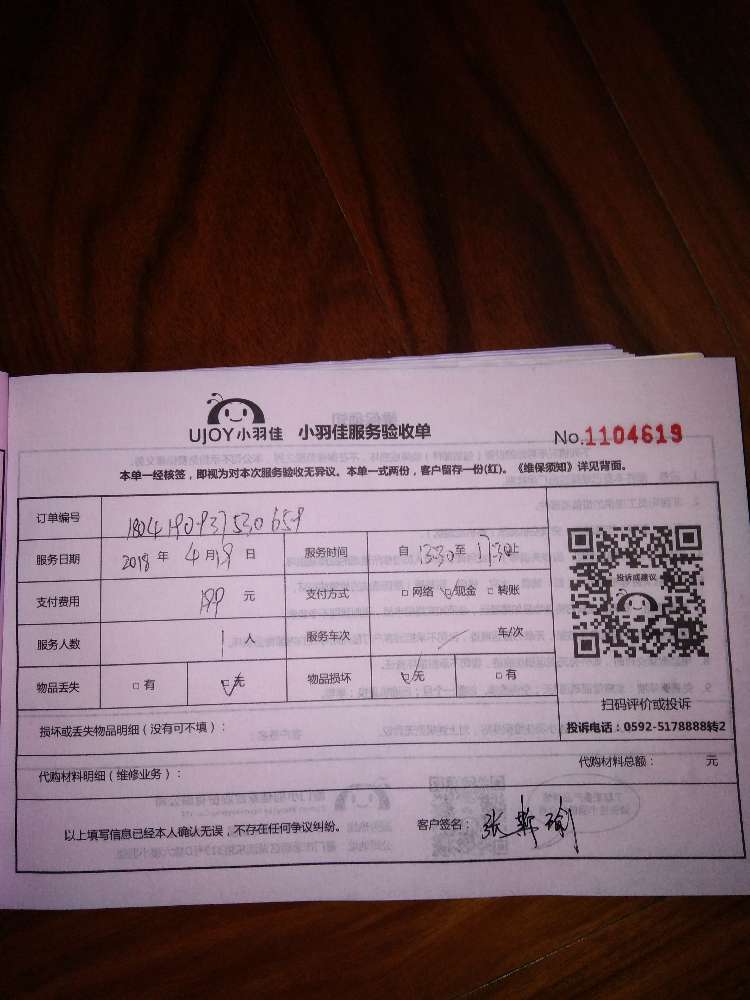 UJOY小羽佳 小羽佳服务验收单 No.1104619
本单一经核签，即视为对本次服务验收无异议。本单一式两份，客户留存一份(红)。《维保须知》详见背面。
订单编号
服务日期 2018 年 4 月 19 日 服务时间 自 13:30 至 17:30 止
支付费用 元 支付方式 □ 网络 ☑ 现金 □ 转账
服务人数 1 人 服务车次 / 车/次
物品丢失 □ 有 ☑ 无 物品损坏 ☑ 无 □ 有
投诉或建议
扫码评价或投诉
投诉电话：0592-5178888转2
损坏或丢失物品明细（没有可不填）：
代购材料明细（维修业务）： 代购材料总额： 元
以上填写信息已经本人确认无误，不存在任何争议纠纷。 客户签名：张